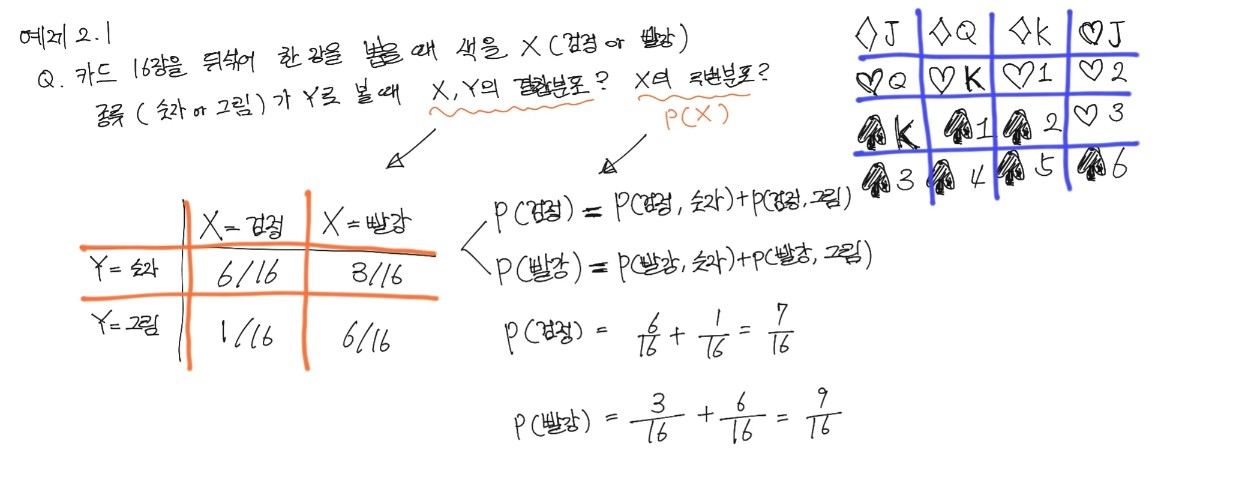 예제 2.1
Q. 카드 16장을 뒤섞어 한 장을 뽑을 때 색을 X (검정 or 빨강)
종류 (숫자 or 그림)가 Y로 볼 때 X, Y의 결합분포? X의 주변분포?
P(X)
◇J ◇Q ◇K ♡J
♡Q ♡K ♡1 ♡2
♠K ♠1 ♠2 ♡3
♠3 ♠4 ♠5 ♠6
X=검정 X=빨강
Y=숫자 6/16 3/16
Y=그림 1/16 6/16
P(검정) = P(검정, 숫자)+P(검정, 그림)
P(빨강) = P(빨강, 숫자)+P(빨강, 그림)
P(검정) = 6/16 + 1/16 = 7/16
P(빨강) = 3/16 + 6/16 = 9/16